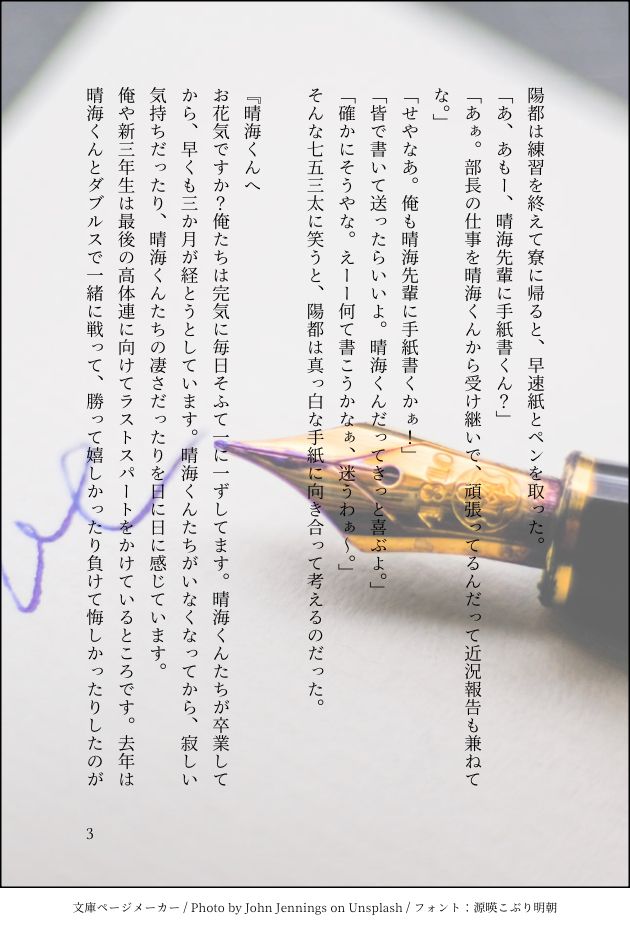 陽都は練習を終えて寮に帰ると、早速紙とペンを取った。
「あ、あもー、晴海先輩に手紙書くん？」
「あぁ。部長の仕事を晴海くんから受け継いで、頑張ってるんだって近況報告も兼ねて
な。」
「せやなあ。俺も晴海先輩に手紙書くかぁ！」
「皆で書いて送ったらいいよ。晴海くんだってきっと喜ぶよ。」
「確かにそうやな。えーー何て書こうかなぁ、迷うわぁ〜。」
そんな七五三太に笑うと、陽都は真っ白な手紙に向き合って考えるのだった。
『晴海くんへ
お花気ですか？俺たちは完気に毎日そふて一に一ずしてます。晴海くんたちが卒業して
から、早くも三か月が経とうとしています。晴海くんたちがいなくなってから、寂しい
気持ちだったり、晴海くんたちの凄さだったりを日に日に感じています。
俺や新三年生は最後の高体連に向けてラストスパートをかけているところです。去年は
晴海くんとダブルスで一緒に戦って、勝って嬉しかったり負けて悔しかったりしたのが
3
文庫ページメーカー / Photo by John Jennings on Unsplash / フォント：源暎こぶり明朝